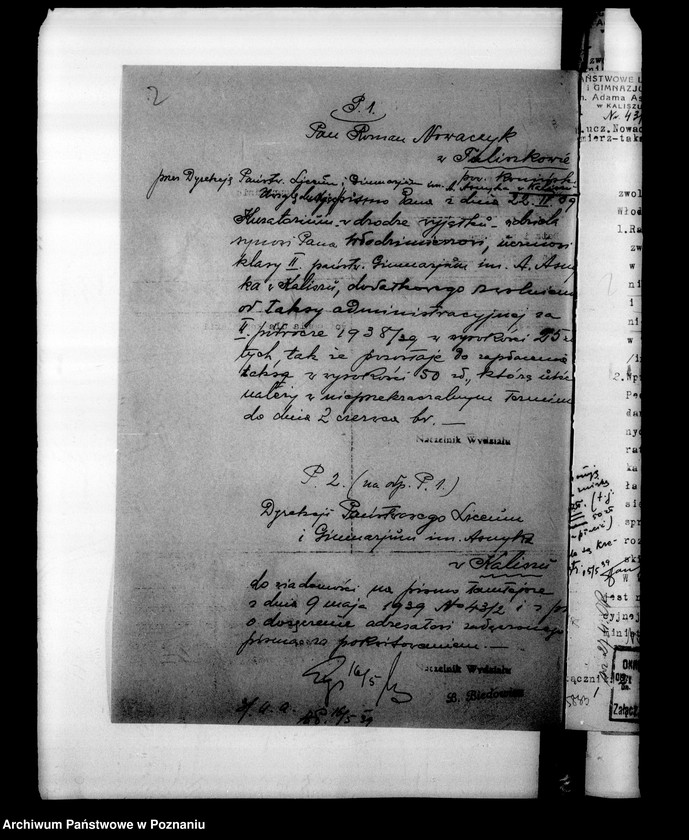 2
P. 1.
Pan Roman Nowaczyk
w Tuliszkowie
pow. Koniński
przez Dyrekcję Państw. Liceum i Gimnazjum im. A. Asnyka w Kaliszu
pismo Pana z dnia 22. II. 39
Kuratorium w drodze wyjątku udziela
synowi Pana Włodzimierzowi, uczniowi
klasy II. państw. Gimnazjum im. A. Asny
ka w Kaliszu, dodatkowego zwolnienia
od taksy administracyjnej za
II. półrocze 1938/39 w wysokości 25 zł
tych, tak że pozostaje do zapłacenia
taksa w wysokości 50 zł., którą uiścić
należy w nieprzekraczalnym terminie
do dnia 2 czerwca br. —
Naczelnik Wydziału
P. 2. (na odp. P. 1.)
Dyrekcji Państwowego Liceum
i Gimnazjum im. Asnyka
w Kaliszu
do wiadomości na pismo tamtejsze
z dnia 9 maja 1939 No 43/2 i z
o doręczenie adresatowi załączonego
pisma za pokwitowaniem. —
Naczelnik Wydziału
16/5
B. Biedowicz
a. a.
16/5 39
PAŃSTWOWE L
I GIMNAZJU
m. Adama As
W KALISZU
Nr. 43/
.ucz.Nowac
mierz-taks
zwol
Włod
1.Ra
zw
w
ni
i
ni
w
/in
2.Wpr
Poc
dan
nyc
rat
ka
ła
sie
spr
roz
ski
W
jest
cyjnej
minist
OKR
Załącz
Archiwum Państwowe w Poznaniu